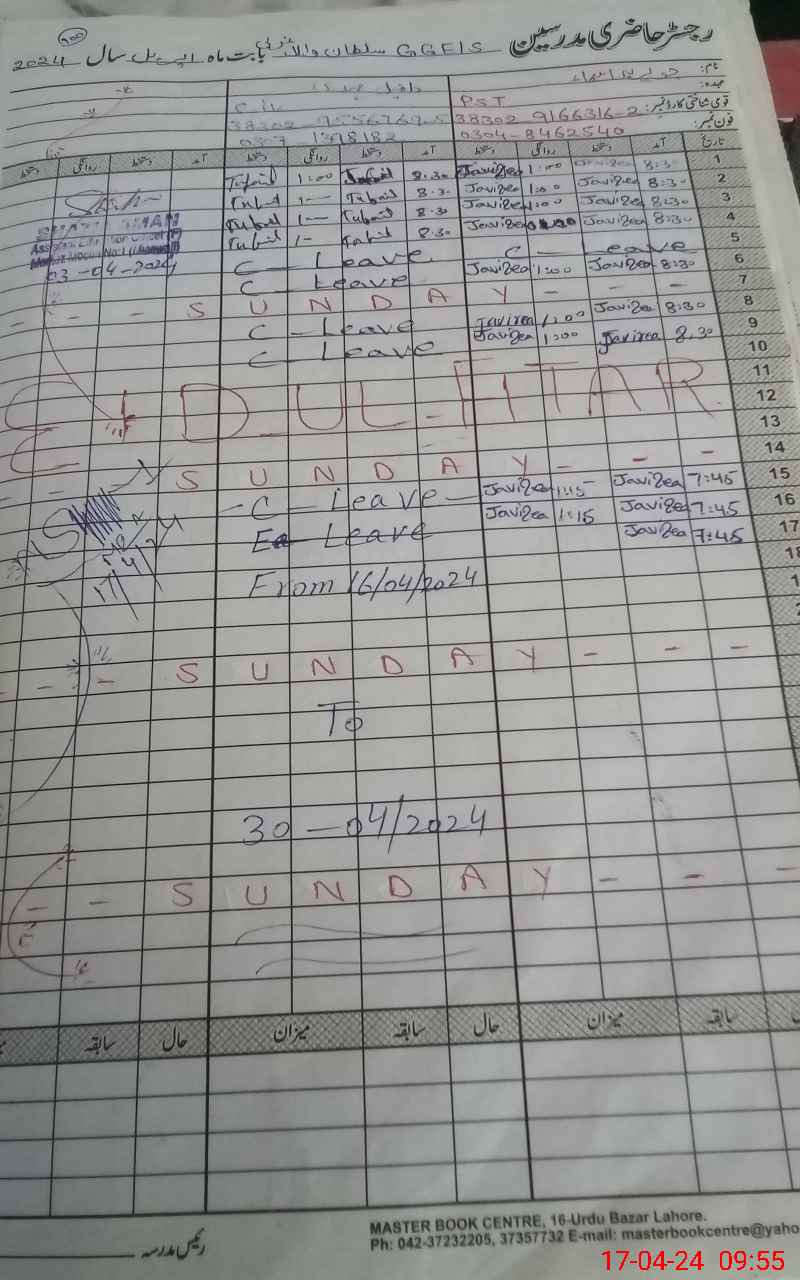 رجسٹر حاضری مدرسین GGES سلطان والا بابت ماہ اپریل سال 2024
نام:
عہدہ: PST
قومی شناختی کارڈ نمبر: 38302 9166316-2 38302
فون نمبر: 0304-8462540 0307-1398182
تاریخ آمد دستخط روانگی دستخط آمد دستخط روانگی دستخط آمد دستخط روانگی دستخط
1 8:30 Javizea 1:00 Javizea 8.30 Tufail 1:00 Tufail
2 8:30 Javizea 1:00 Javizea 8.30 Tufail 1— Tufail
3 8:30 Javizea 1:00 Javizea 8.30 Tufail 1— Tufail
4 8:30 Javizea Javizea 8.30 Tufail 1— Tufail
03-04-2024
5 C — Leave C — Leave
6 8:30 Javizea 1:00 Javizea C — Leave
7 - - - S U N D A Y - - -
8 8:30 Javizea 1:00 Javizea C — Leave
9 8.30 Javizea 1:00 Javizea C — Leave
10
11
12 EID_UL_FITAR
13
14 - - S U N D A Y - - -
15 7:45 Javizea 1:15 Javizea - C — Leave —
16 7:45 Javizea 1:15 Javizea Leave
17 7:45 Javizea
From 16/04/2024
- - - S U N D A Y - - - -
To
30 — 04/2024
- - S U N D A Y - - -
سابقہ میزان حال سابقہ میزان حال سابقہ
رئیس مدرسہ
MASTER BOOK CENTRE, 16-Urdu Bazar Lahore.
Ph: 042-37232205, 37357732 E-mail: masterbookcentre@yaho
17-04-24 09:55